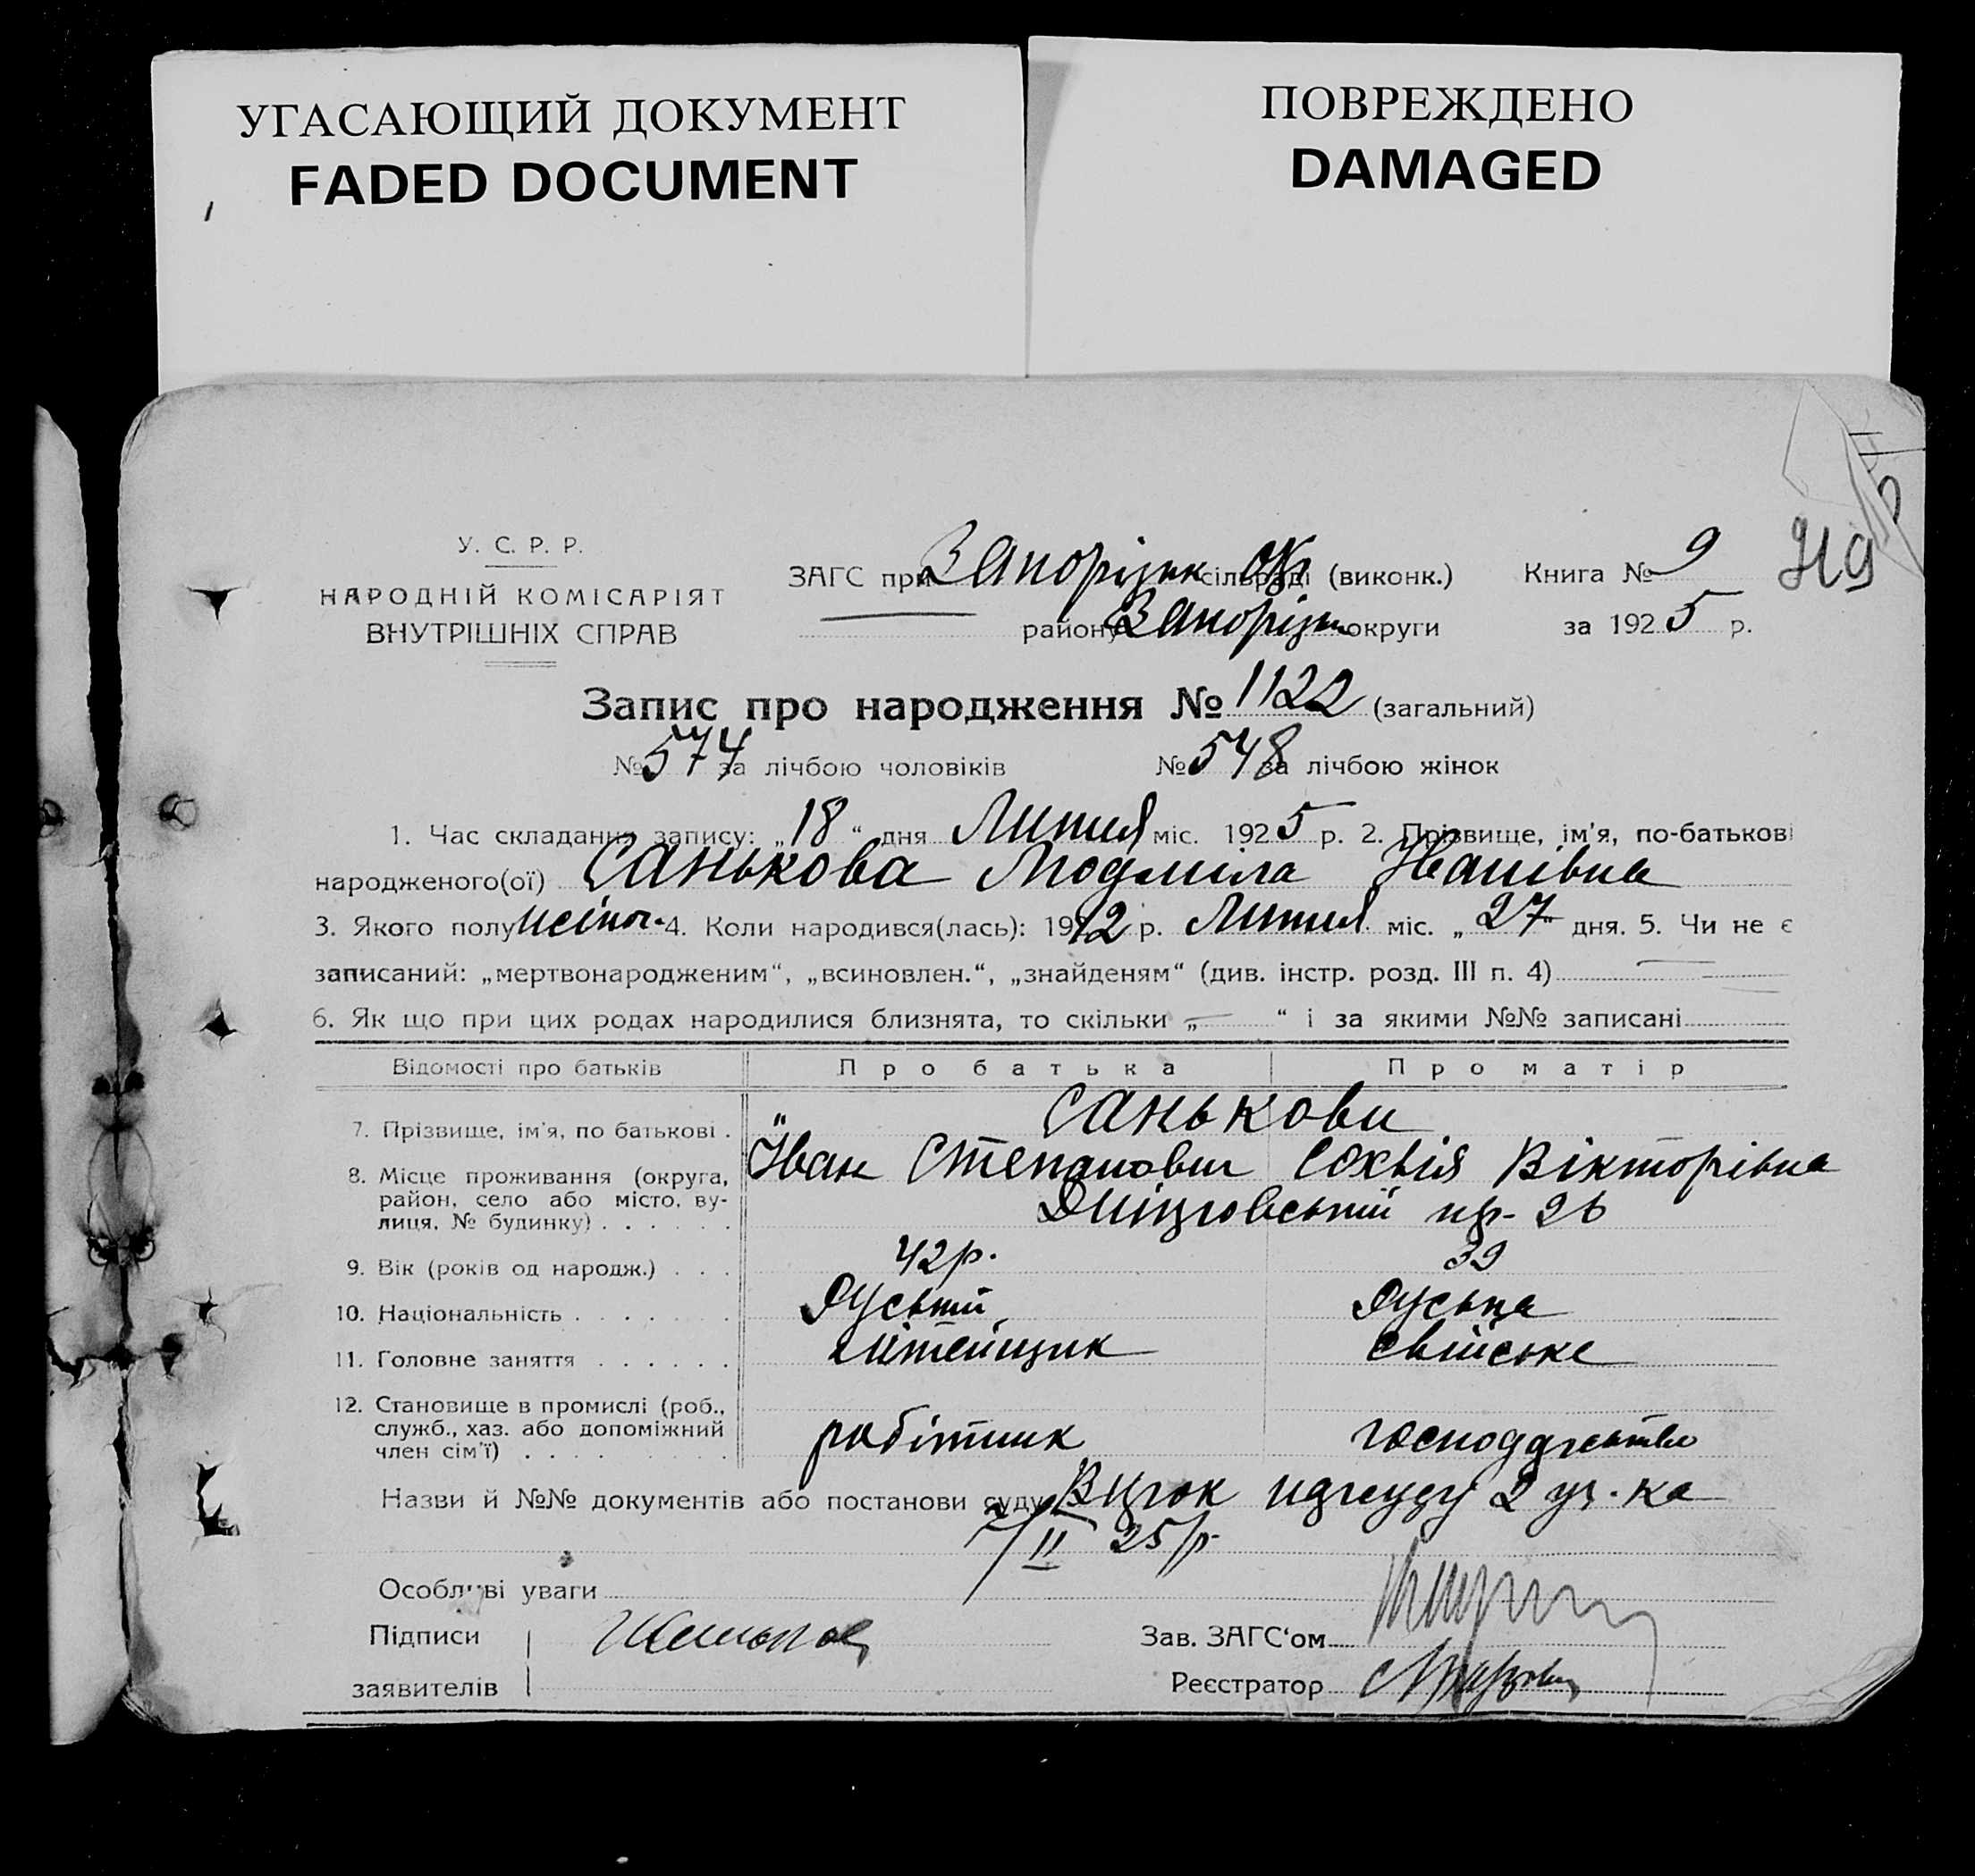 УГАСАЮЩИЙ ДОКУМЕНТ
FADED DOCUMENT
ПОВРЕЖДЕНО
DAMAGED
У. С. Р. Р.
НАРОДНІЙ КОМІСАРІЯТ
ВНУТРІШНІХ СПРАВ
ЗАГС при Запорізьк Ок сільраді (виконк.)
району Запорізьк округи
Книга № 9
за 1925 р.
Запис про народження № 1122 (загальний)
№ 574 за лічбою чоловіків № 548 за лічбою жінок
1. Час складання запису: „18“ дня Лютня міс. 1925 р. 2. Прізвище, ім'я, по-батькові
народженого(ої) Санькова Людміла Іванівна
3. Якого полу жіноч. 4. Коли народився(лась): 1912 р. Лютня міс. „27“ дня. 5. Чи не є
записаний: „мертвонародженим“, „всиновлен.“, „знайденям“ (див. інстр. розд. III п. 4)
6. Як що при цих родах народилися близнята, то скільки „ “ і за якими №№ записані
Відомості про батьків Про батька Про матір
Санькови
7. Прізвище, ім'я, по батькові .
Іван Степанович Софія Вікторівна
8. Місце проживання (округа,
район, село або місто, ву-
лиця, № будинку) . . . . . .
пр. 26
9. Вік (років од народж.) . . . 42 р. 39
10. Національність . . . . . . . Руський Руська
11. Головне заняття . . . . . . Літейщик свійське
12. Становище в промислі (роб.,
служб., хаз. або допоміжний
член сім'ї) . . . . робітник господарство
Назви й №№ документів або постанови суду Вирок нарсуду 2 уч-ка
7/II 25 р.
Особливі уваги
Підписи
заявителів
Зав. ЗАГС'ом
Реєстратор